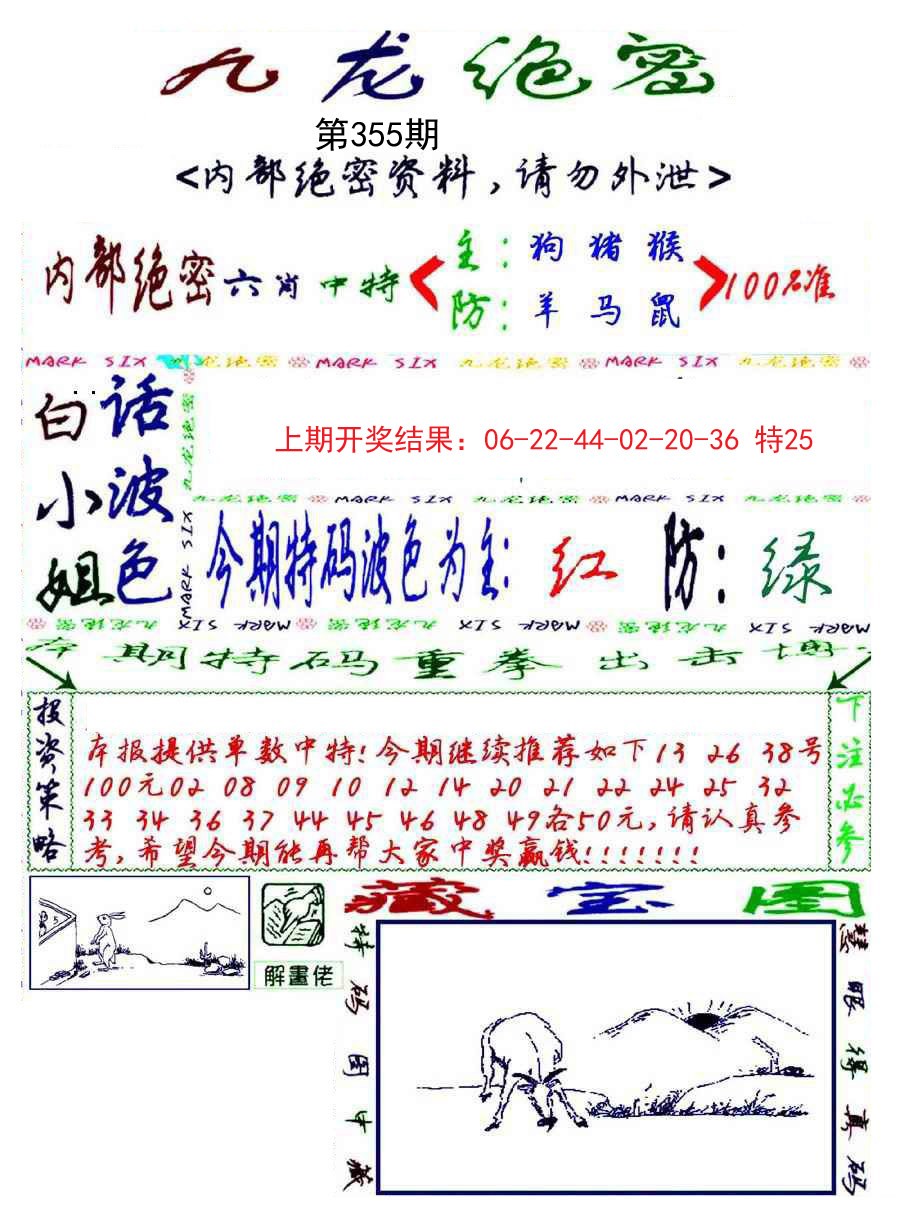 九龙绝密
第355期
<内部绝密资料,请勿外泄>
内部绝密六肖中特
主:狗 猪 猴
防:羊 马 鼠
100%准
MARK SIX 九龙绝密 MARK SIX 九龙绝密 MARK SIX 九龙绝密
白小姐
话波色
九龙绝密 MARK SIX
上期开奖结果: 06-22-44-02-20-36 特25
九龙绝密 MARK SIX 九龙绝密 MARK SIX 九龙绝密
今期特码波色为主: 红 防: 绿
九龙绝密 MARK SIX 九龙绝密 MARK SIX 九龙绝密 MARK SIX
本期特码重拳出击
投资策略
本报提供单数中特!今期继续推荐如下13 26 38号
100元02 08 09 10 12 14 20 21 22 24 25 32
33 34 36 37 44 45 46 48 49各50元,请认真参
考,希望今期能再帮大家中奖赢钱!!!!!!!
下注必参
解畫佬
藏宝图
特码图中藏
慧眼得真码